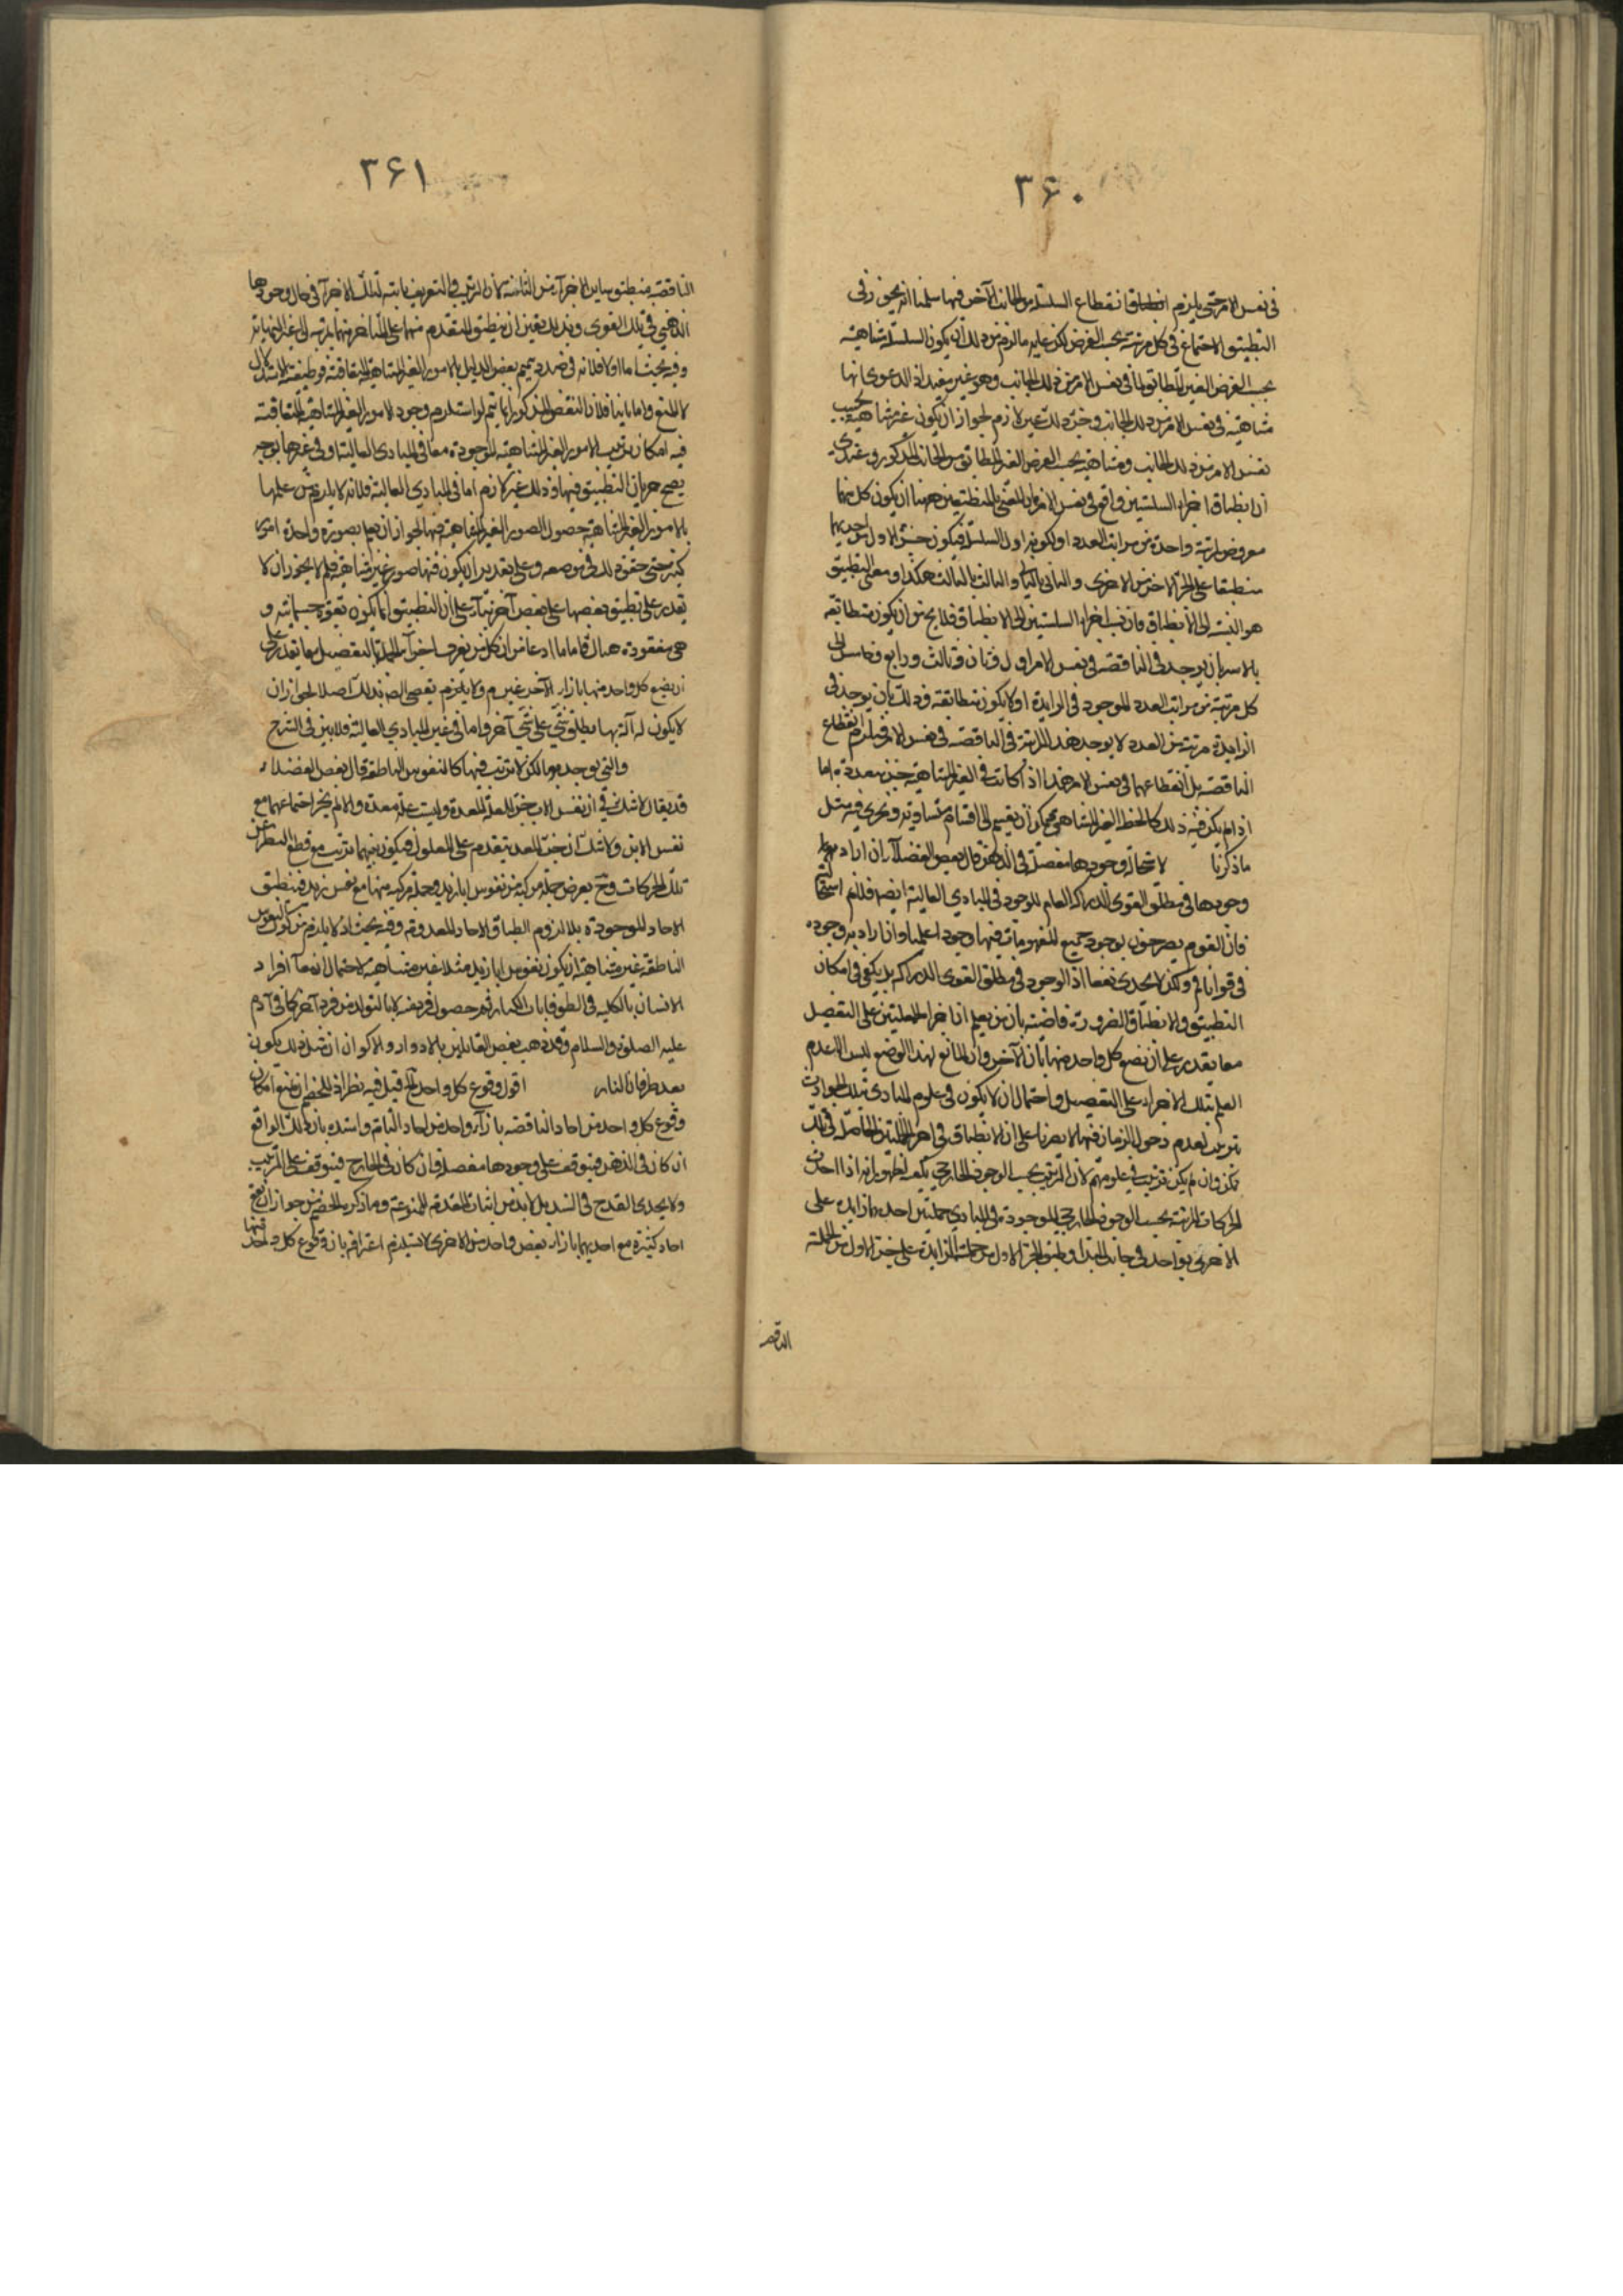 ٣۶٠
في نفس الامر حتى يلزم انطباق انقطاع السلسلة من الجانب الآخر فيها سلمنا انه يجوز في
التطبيق الاجتماع في كل مرتبة بحسب الفرض لكن عليه ما لزم من ذلك ان يكون السلسلة متناهية
بحسب الفرض الغير المطابق لما في نفس الامر من ذلك الجانب وهو غير مفيد اذ الدعوى انها
متناهية في نفس الامر من ذلك الجانب وخير ذلك غير لازم لجواز ان يكون غير متناهية بحسب
نفس الامر من ذلك الجانب ومتناهية بحسب الفرض الغير المطابق من الجانب المذكور وعندي
ان انطباق اجزاء السلسلتين واقع في نفس الامر فان المعنى بالمنطبقين ههنا ان يكون كل منهما
معروض مرتبة واحدة من مراتب العدد او لكونه اول السلسلة فيكون جزء الاول من احديهما
منطبقا على الجزء الاخر من الاخرى والثاني بالثاني والثالث بالثالث هكذا ومعنى التطبيق
هو النسبة الى الانطباق فان نسب اجزاء السلسلتين الى الانطباق فلا يخ من ان يكون متطابقة
بالاسر بان يوجد في الناقصة في نفس الامر اول وثان وثالث ورابع وخامس الى
كل مرتبة من مراتب العدد الموجود في الزايدة او لا يكون متطابقة وذلك بان يوجد في
الزايدة مرتبة من العدد لا يوجد هذه المرتبة في الناقصة في نفس الامر فيلزم انقطاع
الناقصة بل انقطاعهما في نفس الامر هذا اذا كانت في الغير المتناهية جزء معدودة اما
اذا لم يكن فيه ذلك كالخط الغير المتناهي فيمكن ان يقسم الى اقسام متساوية ويجري فيه مثل
ماذكرنا لاستحالة وجودها مفصلة في الذهن قال بعض الفضلاء ان اراد به
وجودها في مطلق القوى الدراكة العام للوجود في المبادي العالية ايضه فلانم استحالته
فان القوم يصرحون بوجود جميع المفهومات فيها وجودا علميا وان اراد به وجوده
في قوانا فم ولكن لا يجدي نفعا اذ الوجود في مطلق القوى الدراكه بل يكفي في امكان
التطبيق والانطباق الضرورة قاضية بان من يعلم اجزاء الجملتين على التفصيل
معا يقدر على ان يضع كل واحد منها بازاء الآخر وان المانع لهذا الوضع ليس الا عدم
العلم بتلك الاجزاء على التفصيل واحتمال ان لا يكون في علوم المبادي بتلك الحوادث
ترتب لعدم دخول الزمان فيها لا يضرنا على ان الانطباق في اجزاء الجملتين الحاصلة في تلك
ممكن وان لم يكن ترتيب في علومهم لان الترتيب بحسب الوجود الخارجي يكفي لظهور انه اذا اخذت
الحركات المرتبة بحسب الوجود الخارجي الموجودة في المبادي جملتين احديهما زايده على
الاخرى بواحد في جانب المبدأ وطبق الجزء الاول من جملة الزايدة على جزء الاول من الجملة
الناقصة
٣۶١
الناقصة منطبق ساير الاجزاء من الثانية لان الترتيب في التعريف ثابتة لتلك الاجزاء في حال وجودها
الذهني في تلك القوى وبذلك يتعين ان ينطبق المتقدم منهما على المتاخر منهما بمرتبه الى غير النهاية
وفيه بحث اما اولا فلانه في صدد تتميم بعض الدليل بالامور الغير المتناهية المتعاقبة وظيفته الاستدلال
لا المنع واما ثانيا فلان النقض المذكور انما يتم لو استلزم وجود الامور الغير المتناهية المتعاقبة
فيه امكان ترتيب الامور الغير المتناهية الموجودة معا في المبادي العالية او في غيرها بوجه
يصح جريان التطبيق فيها وذلك غير لازم اما في المبادي العالية فلانه لا يلزم من علمها
بالامور الغير المتناهية حصول الصور الغير المتناهية فيها لجواز ان يعلم بصورة واحدة امورا
كثيرة حتى حقق ذلك في موضعه وعلى تقدير ان يكون فيها صور غير متناهية فلم لا يجوز ان لا
يقدر على تطبيق بعضها على بعض آخر بناء على ان التطبيق انما يكون بقوة جسمانية و
هي مفقودة هناك فاما ما ادعاه من ان كل من يعرف اجزاء الجملة بالتفصيل معا يقدر على
ان يضع كل واحد منها بازاء الآخر غير م ولا يلزم نقص النفس بذلك اصلا لجواز ان
لا يكون له آلة بها يطبق شيء على شيء آخر واما في غير المبادي العالية فلما بين في الشرح
والتي يوجد معا لكن لا ترتب فيها كالنفوس الناطقة قال بعض الفضلاء
قد يقال لا شك في ان نفس الاب جزء العلة المعدة وليست علة معدة والا لم يجز اجتماعهما مع
نفس الابن ولا شك ان جزء المعد يتقدم على المعلول فيكون بينهما ترتب مع قطع النظر عن
تلك الحركات وح يعرض جملة مركبة من نفوس اباء زيد وجملة مركبة منها مع نفس زيد فينطبق
الاحاد الموجودة بلا لزوم انطباق الاحاد المعدومة وفيه بحث اذ لا يلزم من كون النفوس
الناطقة غير متناهية ان يكون نفوس اباء زيد مثلا غير متناهية لاحتمال انعدام افراد
الانسان بالكلية في الطوفانات الكبار ثم حصول فرد منه لا بالتولد من فرد آخر كما في آدم
عليه الصلوة والسلام وقد ذهب بعض القائلين بالادوار والاكوان ان مثل ذلك يكون
بعد طوفان النار اقول وقوع كل واحد الخ قيل فيه نظر اذ للخصم ان يمنع امكان
وقوع كل واحد من احاد الناقصه بازاء واحد من احاد التامة واستده بان ذلك الواقع
ان كان في الذهن فيتوقف على وجودها مفصلة وان كان في الخارج فيتوقف على الترتيب
ولا يجدي القدح في السند بل لا بد من اثبات المقدمة الممنوعة وما ذكره الخصم من جواز ان يقع
احاد كثيرة مع احديهما بازاء بعض واحد من الاخرى لا يستلزم اعترافه بان وقوع كل واحد منها